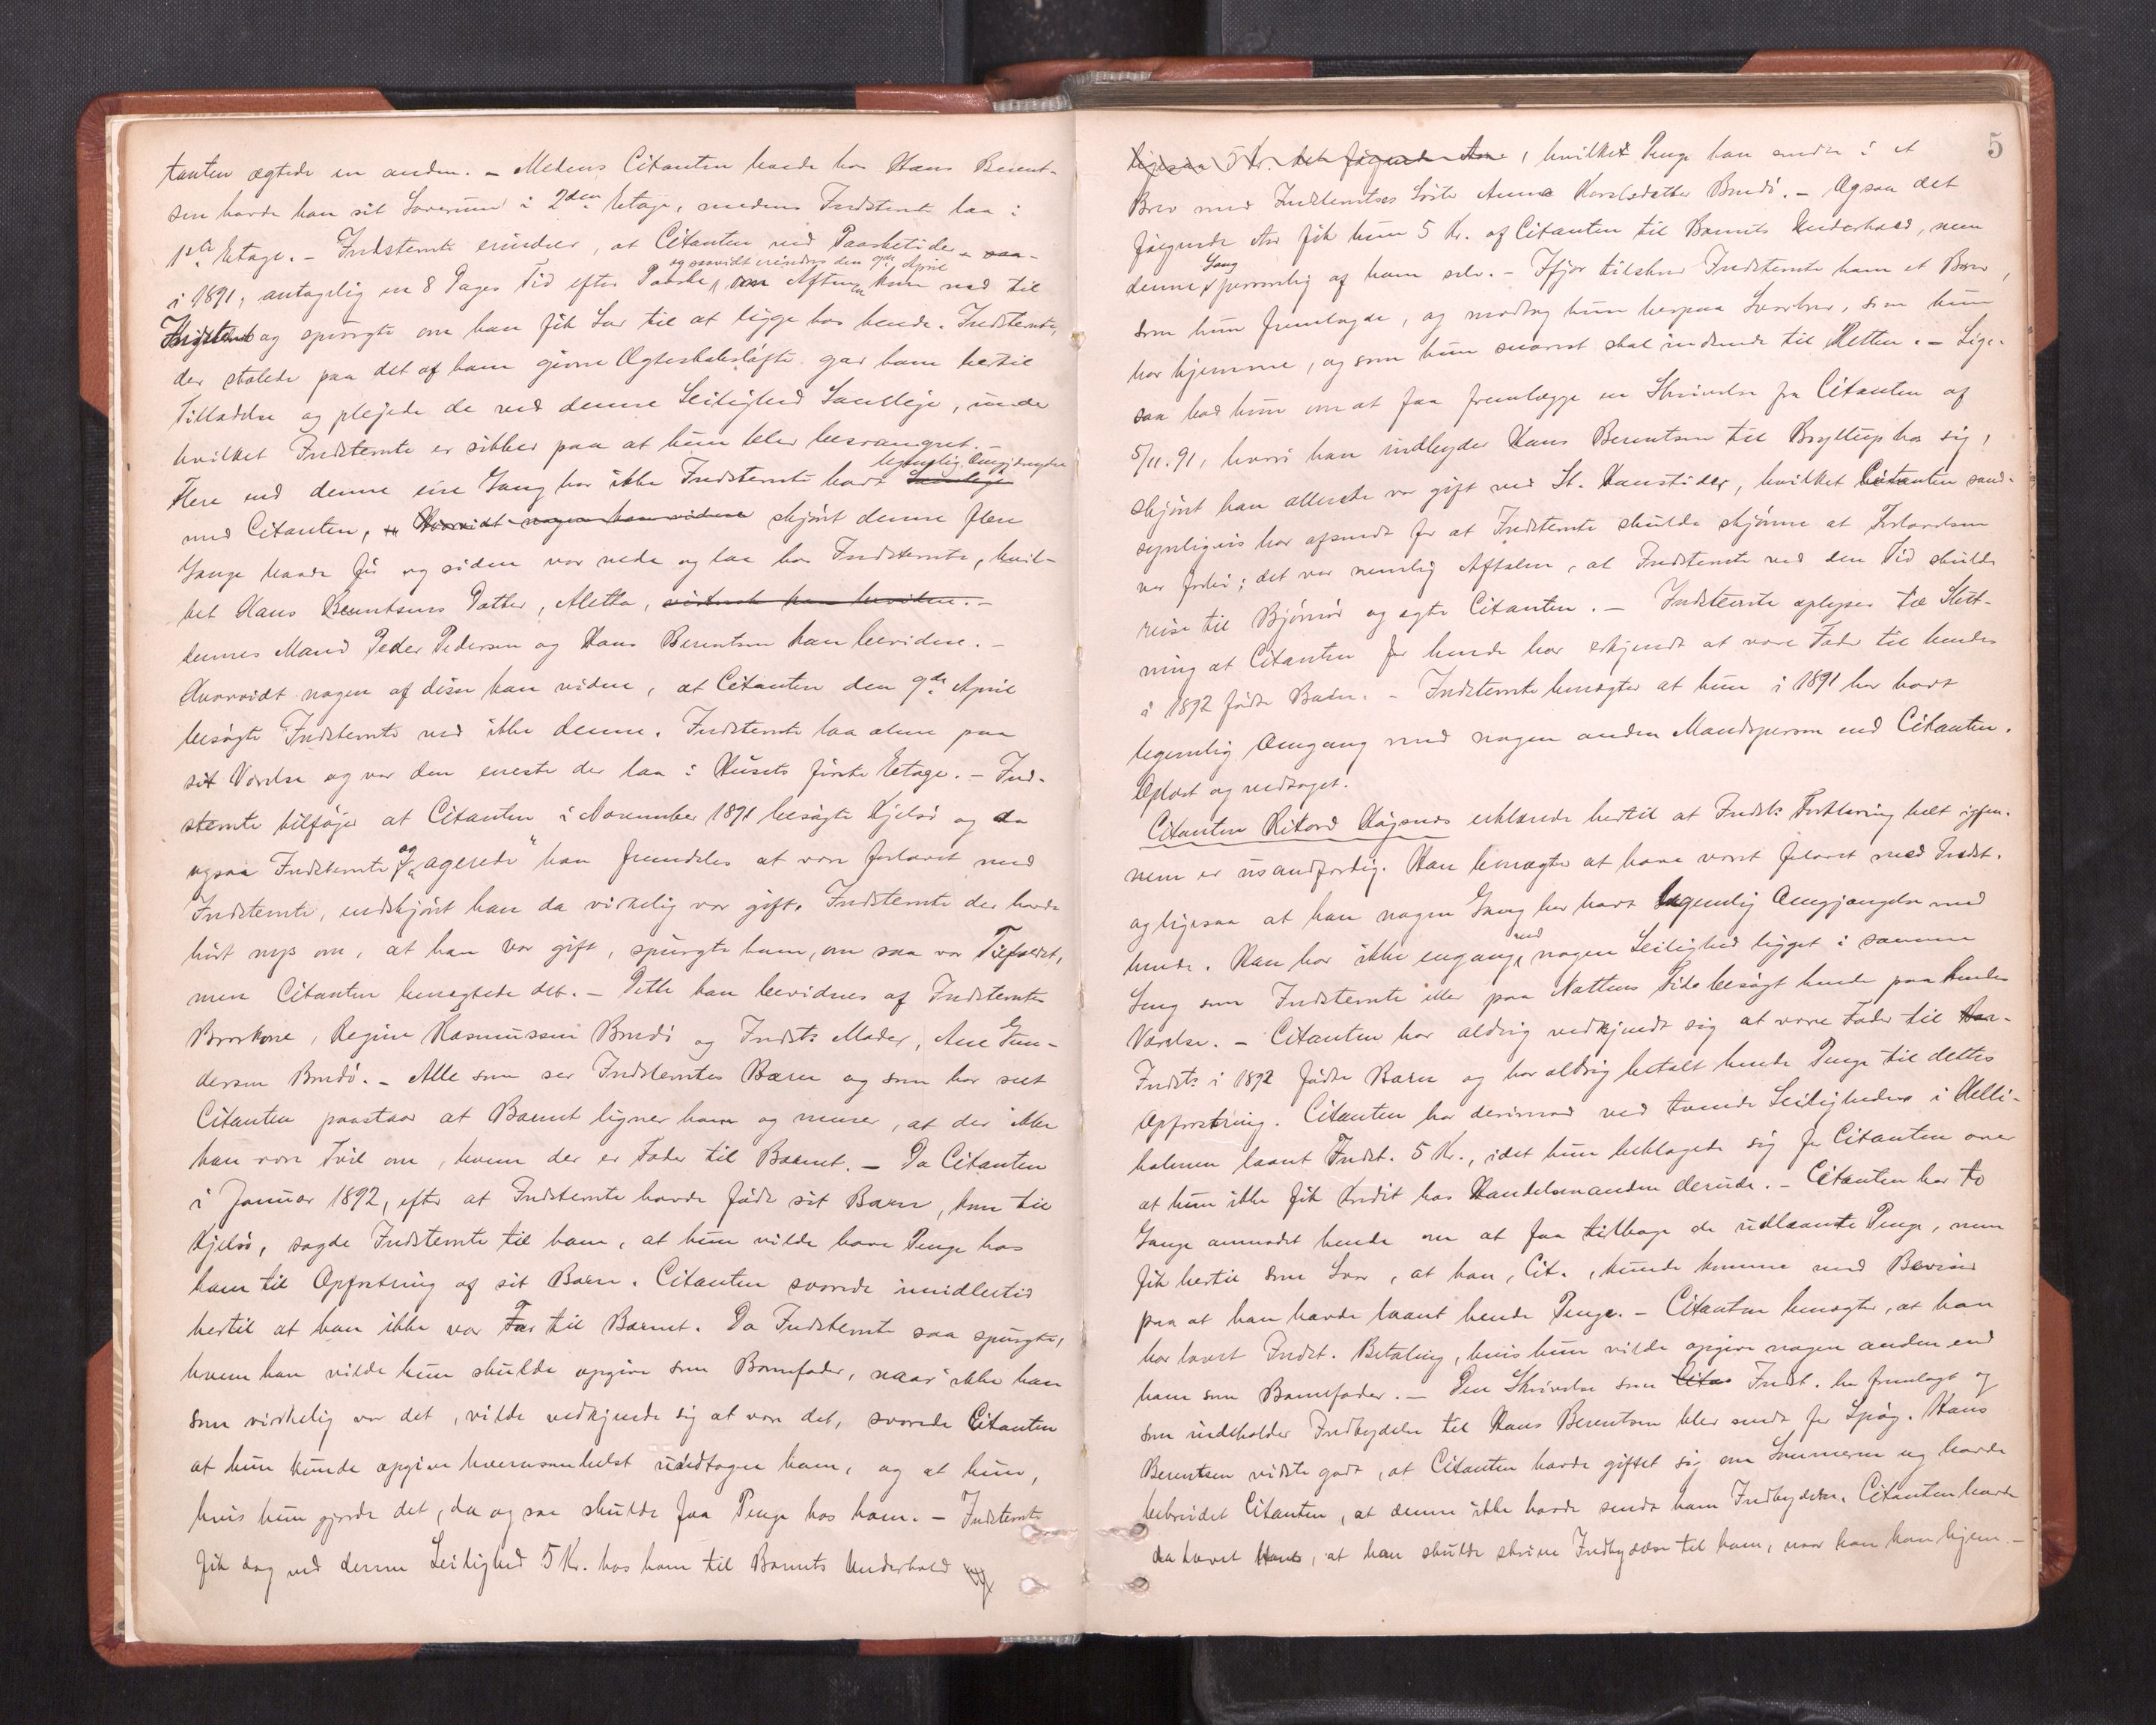 tanten ægtede en anden. – Medens Citanten havde hos Hans Berent-
sen havde han sit Soverum i 2den Etage, medens Indstevnte laa i
1ste Etage. – Indstevnte erindrer, at Citanten ved Paasketider – saa –
og saavidt erindres den 9de April
i 1891, antagelig en 8 Dages Tid efter Paaske, om Aftenen kom ned til
Indstevnte og spurgte om han fik Lov til at ligge hos hende. Indstevnte,
der stolede paa det af ham givne Ægteskabsløfte gav ham hertil
Tilladelse og plejede de ved denne Leilighed Samleje, under
hvilket Indstevnte er sikker paa at hun blev besvangret. –
legemlig Omgjængelse
Flere end denne ene Gang har ikke Indstevnte havt Samleje
med Citanten, Hvorvidt nogen kan vidne skjønt denne flere
Gange baade før og siden var nede og laa hos Indstevnte, hvil-
ket Hans Berentsens Datter, Aletta, vistnok kan bevidne. –
dennes Mand Peder Pedersen og Hans Berentsen kan bevidne. –
Hvorvidt nogen af disse kan vidne, at Citanten den 9de April
besøgte Indstevnte ved ikke denne. Indstevnte laa alene paa
sit Værelse og var den eneste der laa i Husets første Etage. – Ind-
stevnte tilføjer at Citanten i November 1891 besøgte Kjelsø og da
ogsaa Indstevnte og "agerede" han fremdeles at være forlovet med
Indstevnte, endskjønt han da virkelig var gift. Indstevnte der havde
hørt nys om, at han var gift, spurgte ham, om saa var Tilfældet,
men Citanten benegtede det. – Dette kan bevidnes af Indstevntes
Brorkone, Regine Rasmussen Bredø og Indsts Moder, Ane Gun-
dersen Bredø. – Alle som ser Indstevntes Barn og som har seet
Citanten paastaar at Barnet ligner ham og mener, at der ikke
kan være Tvil om, hvem der er Fader til Barnet. – Da Citanten
i Januar 1892, efter at Indstevnte havde født sit Barn, kom til
Kjelsø, sagde Indstevnte til ham, at hun vilde have Penge hos
ham til Opfostring af sit Barn. Citanten svarede imidlertid
hertil at han ikke var Far til Barnet. Da Indstevnte saa spurgte,
hvem han vilde hun skulde opgive som Barnefader, naar ikke han
som virkelig var det, vilde vedkjende sig at være det, svarede Citanten
at hun kunde opgive hvemsomhelst undtagen ham, og at hun,
hvis hun gjorde det, da og saa skulde faa Penge hos ham. – Indstevnte
fik dog ved denne Leilighed 5 Kr. hos ham til Barnets Underhold og
5
ligesaa 5 Kr. det følgende Aar, hvilket Penge han sendte i et
Brev med Indstevntes Søster Anna Karlsdatter Bredø. – Ogsaa det
følgende Aar fik hun 5 Kr. af Citanten til Barnets Underhold, men
denne Gang personlig af ham selv. – Ifjor tilskrev Indstevnte ham et Brev,
som hun fremlagde, og modtog hun herpaa Svarbrev, som hun
har hjemme, og som hun snarest skal indsende til Retten. – Lige-
saa bad hun om at faa fremlægge en Skrivelse fra Citanten af
5/11.91, hvori han indbyder Hans Berentsen til Bryllup hos sig,
skjønt han allerede var gift ved St. Hanstider, hvilket Citanten sand-
synligvis har afsendt for at Indstevnte skulde skjønne at Forlovelsen
var forbi; det var nemlig Aftalen, at Indstevnte ved den Tid skulde
reise til Bjørnør og egte Citanten. – Indstevnte oplyser til Slut-
ning at Citanten for hende har erkjendt at være Fader til hendes
i 1892 fødte Barn. – Indstevnte benægter at hun i 1891 har havt
legemlig Omgang med nogen anden Mandsperson end Citanten.
Oplæst og vedtaget.
Citanten Rikard Høgsnes erklærede hertil at Indsts Forklaring helt igjen-
nem er usandfærdig. Han benægter at have været forlovet med Indst.
og ligesaa at han nogen Gang har havt legemlig Omgjængelse med
hende. Han har ikke engang ved nogen Leilighed ligget i samme
Seng som Indstevnte eller paa Nattens Tide besøgt hende paa hendes
Værelse. – Citanten har aldrig vedkjendt sig at være Fader til Bar-
Indsts i 1892 fødte Barn og har aldrig betalt hende Penge til dettes
Opfostring. Citanten har derimod ved tvende Leiligheder i Helli-
holmen laant Indst. 5 Kr., idet hun beklagede sig for Citanten over
at hun ikke fik Kredit hos Handelsmanden derude. – Citanten har to
Gange anmodet hende om at faa tilbage de udlaante Penge, men
fik hertil som Svar, at han, Cit., kunde komme med Beviser
paa at han havde laant hende Penge. – Citanten benægter, at han
har lovet Indst. Betaling, hvis hun vilde opgive nogen anden end
ham som Barnefader. – Den Skrivelse som Citas Indst. har fremlagt og
som indeholder Indbydelse til Hans Berentsen blev sendt for Spøg. Hans
Berentsen vidste godt, at Citanten havde giftet sig om Sommeren og havde
bebreidet Citanten, at denne ikke havde sendt ham Indbydelse. Citanten havde
da lovet Hans, at han skulde skrive Indbydelse til ham, naar han kom hjem. –